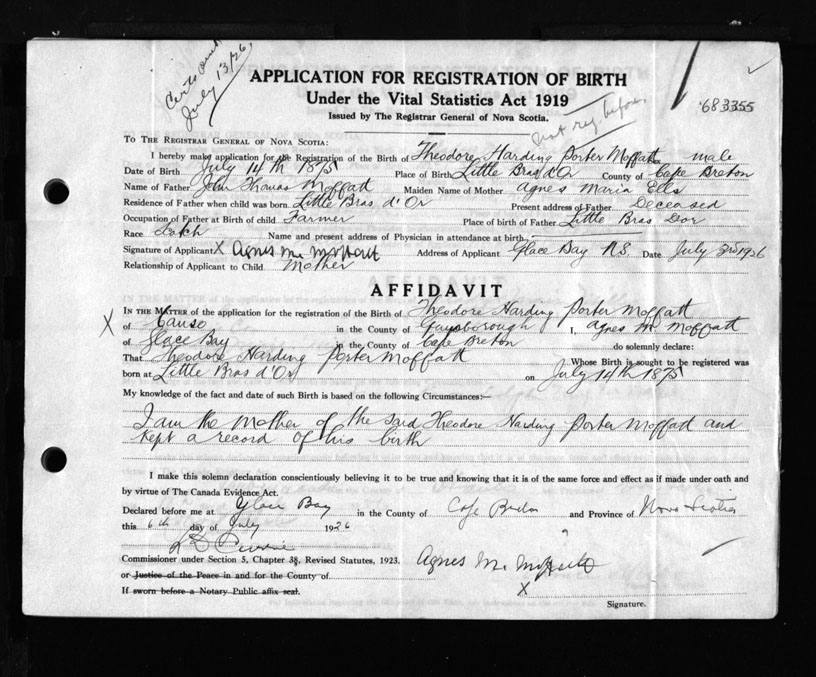 Certs Omit
July 13/26.
APPLICATION FOR REGISTRATION OF BIRTH
Under the Vital Statistics Act 1919
Issued by The Registrar General of Nova Scotia.
683355
Not reg. before.
TO THE REGISTRAR GENERAL OF NOVA SCOTIA:
I hereby make application for the Registration of the Birth of Theodore Harding Porter Moffatt male
Date of Birth July 14th 1875 Place of Birth Little Bras d'Or County of Cape Breton
Name of Father John Thomas Moffatt Maiden Name of Mother Agnes Maria Ells
Residence of Father when child was born Little Bras d'Or Present address of Father Deceased
Occupation of Father at Birth of child Farmer Place of birth of Father Little Bras Dor
Race Scotch Name and present address of Physician in attendance at birth
Signature of Applicant X Agnes M. Moffatt Address of Applicant Glace Bay N.S. Date July 3rd 1926
Relationship of Applicant to Child Mother
AFFIDAVIT
IN THE MATTER of the application for the registration of the Birth of Theodore Harding Porter Moffatt
X of Canso in the County of Guysborough I, Agnes M Moffatt
of Glace Bay in the County of Cape Breton do solemnly declare:
That Theodore Harding Porter Moffatt Whose Birth is sought to be registered was
born at Little Bras d'Or on July 14th 1875
My knowledge of the fact and date of such Birth is based on the following Circumstances:—
I am the mother of the said Theodore Harding Porter Moffatt and
kept a record of his birth
I make this solemn declaration conscientiously believing it to be true and knowing that it is of the same force and effect as if made under oath and
by virtue of The Canada Evidence Act.
Declared before me at Glace Bay in the County of Cape Breton and Province of Nova Scotia
this 6th day of July 1926
Commissioner under Section 5, Chapter 38, Revised Statutes, 1923.
Agnes M. Moffatt
or Justice of the Peace in and for the County of
X
If sworn before a Notary Public affix seal.
Signature.